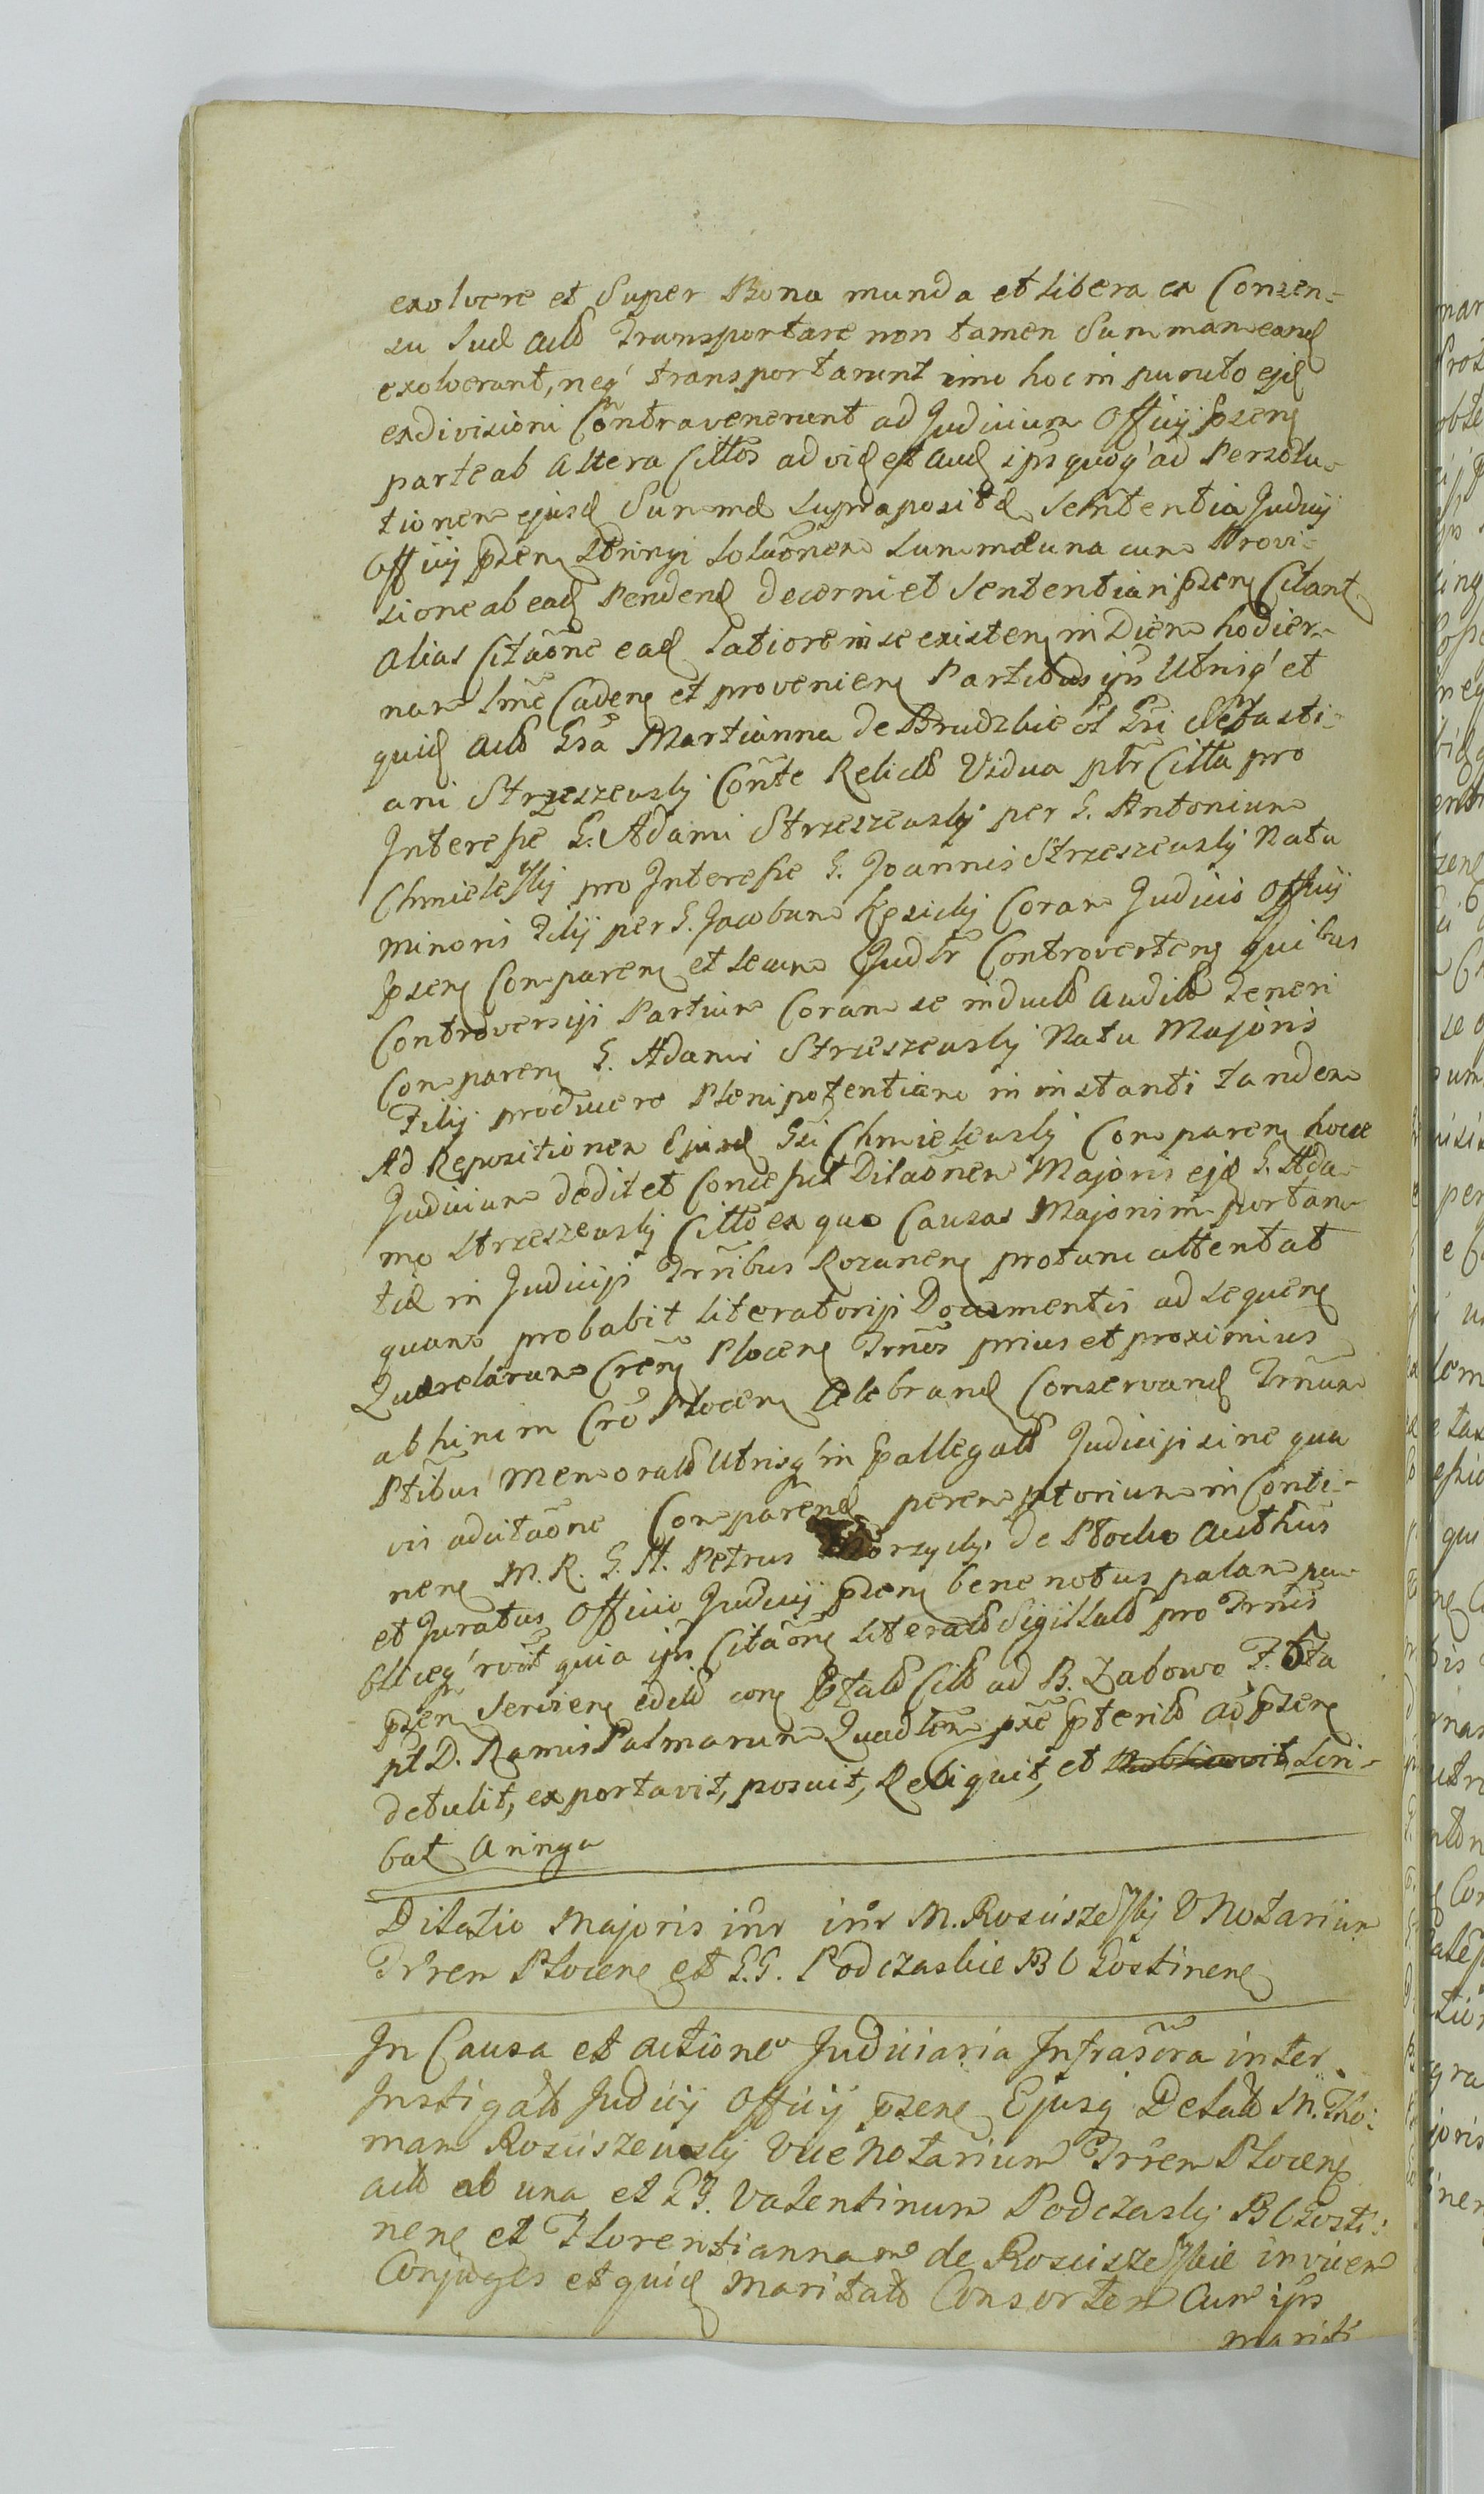 exolvere et Super Bona munda et libera ex Consen-
su Sud actis Transportare non tamen Summam eand
exolverunt, neq transportarunt imo hoc in puncto ejsd
exdivisioni Contravenerunt ad Judicium Officij psens
parte ab altera Cittos ad vid et aud ipsquoq ad Persolu-
tionem ejusd Summæ supraposit Sententia Judicij
Officij psens Stringi Solutionem Summæ una cum Provi-
sione ab ead Pendend decerni et Sententiari psens Citant
alias Citaone ead latiore in se existen in Diem hodier-
nam Lme Caden et provenien Partibus ijs Utrisq et
quid actis Gsa Martianna de Brudzkie ol Gsi Sebasti-
ani Strzeszewsky Conte Relicta Vidua ptr Citta pro
Interesse G. Adami Strzeszewsky per G. Antonium
Chmielewsky pro Interesse G. Joannis Strzeszewsky Natu
minoris Filij per G. Jacobum Kesicky Coram Judicio Officij
psens Comparen et secum Judlr Controverten quibus
Controversijs Partium Coram se induct audit Teneri
Comparen G. Adami Strzeszewsky Natu Majoris
Filij producere Plenipotentiam in instanti tandem
Ad Repositionem Ejusd Gsi Chmielewsky Comparen hocce
Judicium dedit et Concessit Dilaonem Majoris ejsd G. Ada-
mo Strzeszewsky Citto ex quo Causas Majoris importan-
tiæ in Judicijs Trnibus Rozanen protunc attentat
quam probabit literatorijs Documentis ad sequen
Querelarum Cren Plocen Trnos prius et proximius
abhinc in Cro Plocen Celebrand Conservand Trnum
Ptibus memorat Utrisq in pallegat Judicijs sine qua
vis adcitaone Comparend peremptorium in Conti-
nen M. R. G. H. Petrus de Plocko Authus
et Juratus Officio Judicij psen bene notus palam pu-
bliceq rvit quia ijs Citaone literat Sigillat pro Trnis
psen Servien edit con ptat Cit ad B. Zabowo F. 5ta
pt D. Ramis Palmarum Quadlem pxe pterit ad psen
detulit, exportavit, posuit, Reliquit, et Scri-
bat Aninga
Dilatio Majoris inr inr M. Rosciszewsky V Notarium
Trrem Plocen et G.G. Podczaskie B C Gostinen
In Causa et actione Judiciaria Infrascra inter
Instigat Judicij Officij psens Ejusq Delat M. Tho-
mam Rosciszewsky Vice Notarium Trrem Plocen
act ab una et GG. Valentinum Podczasky B C Gosti-
nen et Florentiannam de Rosciszewskie invicem
Conjuges et quid Maritat Consortem Cum ijs
mariti